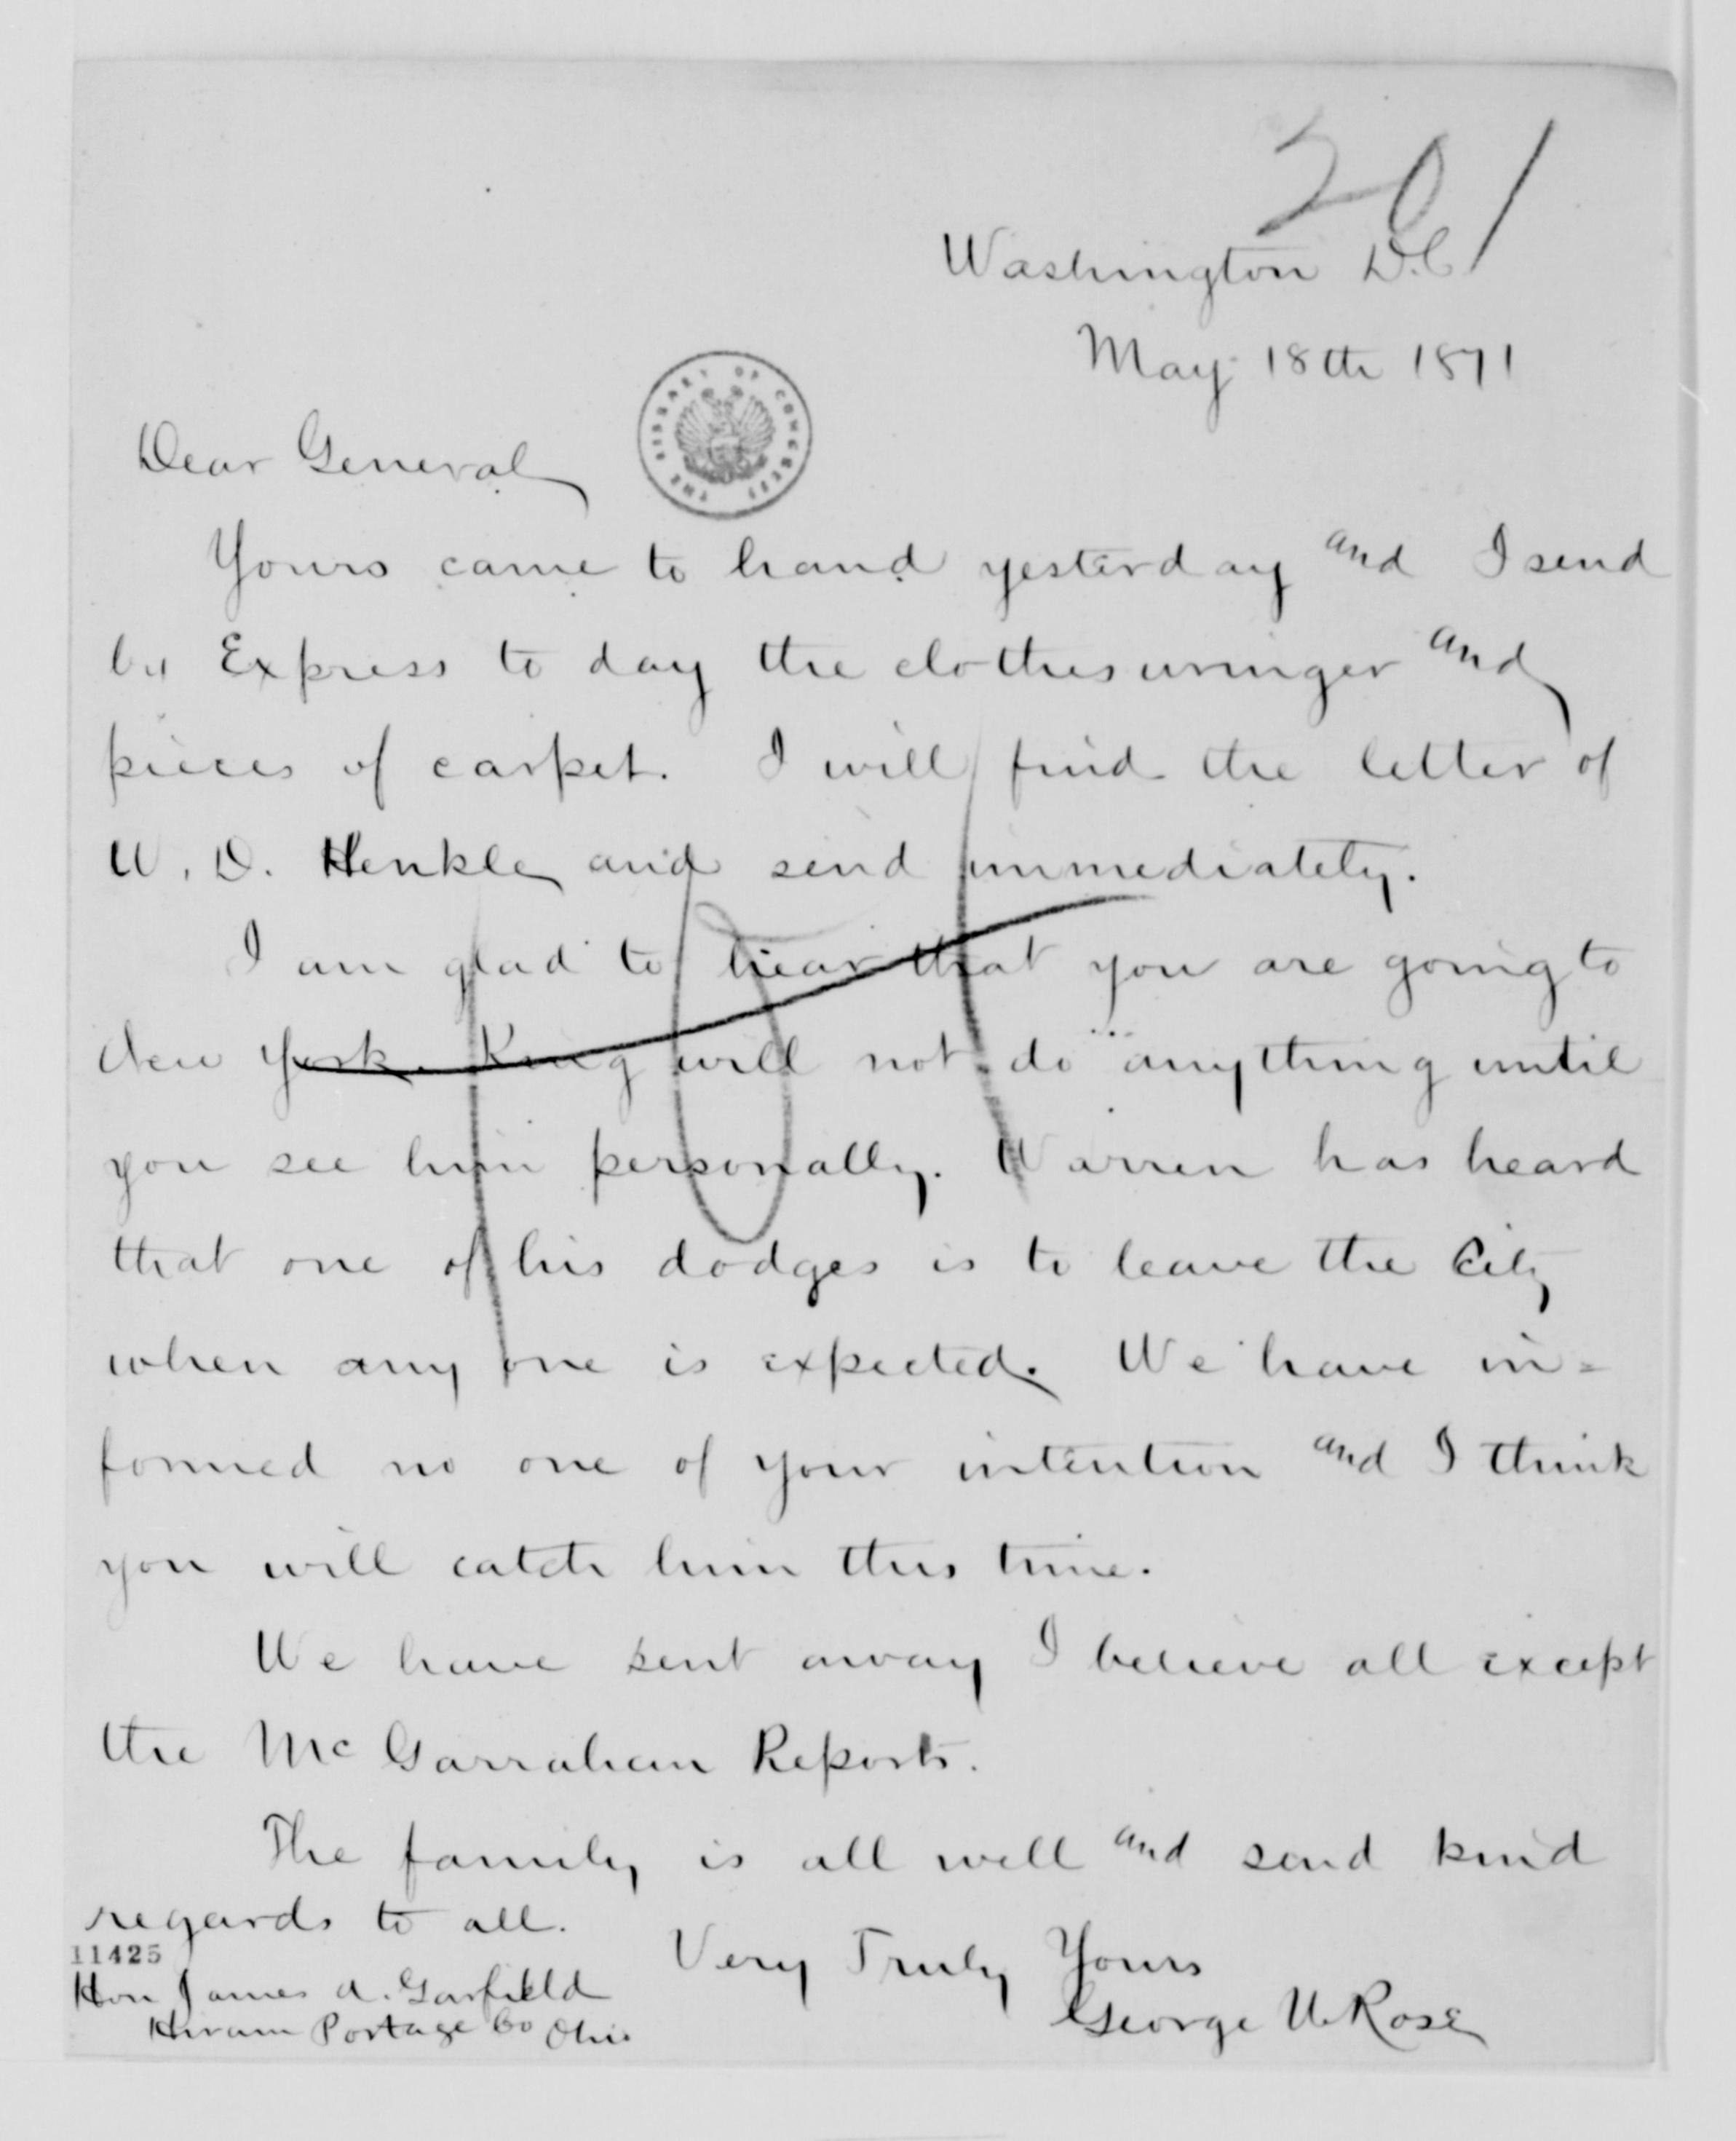 201
Washington D.C.
May 18th 1871
THE LIBRARY OF CONGRESS
Dear General
Yours came to hand yesterday and I send
by Express to day the clotheswringer and
pieces of carpet. I will find the letter of
W. D. Henkle and send immediately.
I am glad to hear that you are going to
New York. King will not do anything until
you see him personally. Warren has heard
that one of his dodges is to leave the City
when any one is expected. We have in=
formed no one of your intention and I think
you will catch him this time.
We have sent away I believe all except
the McGarrahan Reports.
The family is all well and send kind
regards to all.
Very Truly Yours
George U. Rose
11425
Hon James A. Garfield
Hiram Portage Co Ohio